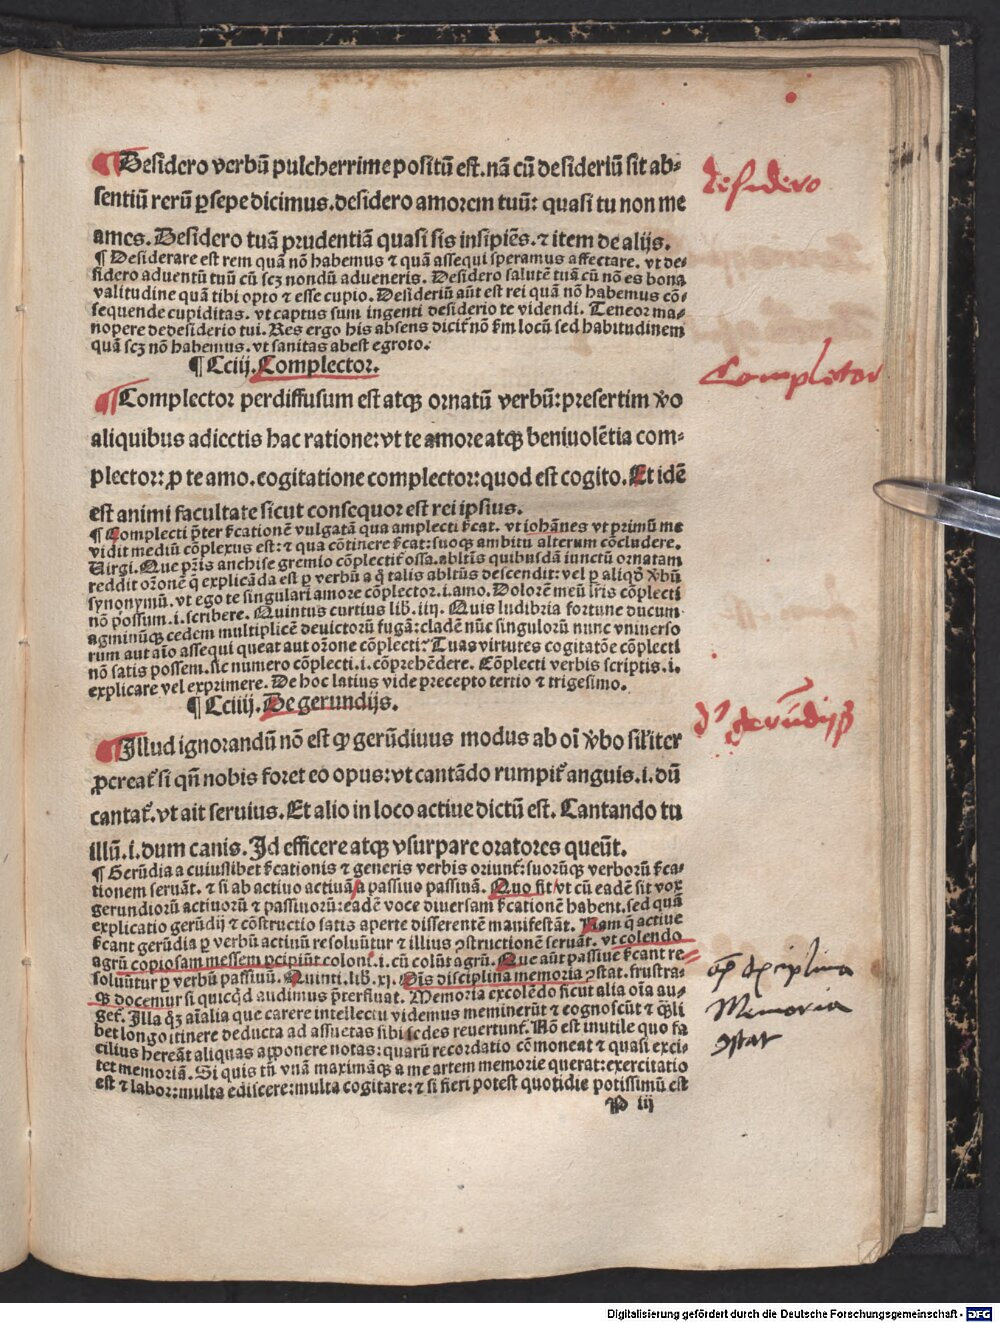 ¶ Desidero verbū pulcherrime positū est. nā cū desideriū sit ab⸗
sentiū rerū ꝑsepe dicimus. desidero amorem tuū: quasi tu non me
ames. Desidero tuā prudentiā quasi sis insipiēs. ⁊ item de alijs.
¶ Desiderare est rem quā nō habemus ⁊ quā assequi speramus affectare. vt de⸗
sidero aduentū tuū cū scꝫ nondū adueneris. Desidero salutē tuā cū nō es bona
valitudine quā tibi opto ⁊ esse cupio. Desideriū aūt est rei quā nō habemus cō⸗
sequende cupiditas. vt captus sum ingenti desiderio te videndi. Teneor ma⸗
nopere de desiderio tui. Res ergo his absens dicit᷑ nō ẜm locū sed habitudinem
quā scꝫ nō habemus. vt sanitas abest egroto.
¶ Cciij. Complector.
¶ Complector perdiffusum est atqꝫ ornatū verbū: presertim v̓o
aliquibus adiectis hac ratione: vt te amore atqꝫ beniuolētia com⸗
plector: ꝓ te amo. cogitatione complector: quod est cogito. Et idē
est animi facultate sicut consequor est rei ipsius.
¶ Complecti p̄ter ẜcationē vulgatā qua amplecti ẜcat. vt iohānes vt primū me
vidit mediū cōplexus est: ⁊ qua cōtinere ẜcat: suoqꝫ ambitu alterum cōcludere.
Virgi. Que pr̄is anchise gremio cōplectit᷑ ossa. abltīs quibusdā iunctū ornatam
reddit orōnē q̄ explicāda est ꝑ verbū a q̊ talis abltūs descendit: vel ꝑ aliqd̓ v̓bū
synonymū. vt ego te singulari amore cōplector .i. amo. Dolorē meū lr̄is cōplecti
nō possum .i. scribere. Quintus curtius lib. iiij. Quis ludibria fortune ducum
agminūqꝫ cedem multiplicē deuictorū fugā: cladē nūc singulorū nunc vniuerso
rum aut aīo assequi queat aut orōne cōplecti? Tuas virtutes cogitatōe cōplecti
nō satis possem. sic numero cōplecti .i. cōprehēdere. Cōplecti verbis scriptis .i.
explicare vel exprimere. De hoc latius vide precepto tertio ⁊ trigesimo.
¶ Cciiij. De gerundijs.
¶ Illud ignorandū nō est ꝙ gerūdiuus modus ab oī v̓bo sil̓iter
ꝓcreat᷑ si qn̄ nobis foret eo opus: vt cantādo rumpit᷑ anguis .i. dū
cantat᷑. vt ait seruius. Et alio in loco actiue dictū est. Cantando tu
illū .i. dum canis. Id efficere atqꝫ vsurpare oratores queūt.
¶ Gerūdia a cuiuslibet ẜcationis ⁊ generis verbis oriunt᷑: suorūqꝫ verborū ẜca⸗
tionem seruāt. ⁊ si ab actiuo actiuā / a passiuo passiuā. Quo fit / vt cū eadē sit vox
gerundiorū actiuorū ⁊ passiuorū: eadē voce diuersam ẜcationē habent. sed quā
explicatio gerūdij ⁊ cōstructio satis aperte differentē manifestāt. Nam q̄ actiue
ẜcant gerūdia ꝑ verbū actiuū resoluūtur ⁊ illius ꝯstructionē seruāt. vt colendo
agrū copiosam messem ꝑcipiūt coloni .i. cū colūt agrū. Que aūt passiue ẜcant re⸗
soluūtur ꝑ verbū passiuū. Quinti. lib. xi. Oīs disciplina memoria ꝯstat. frustra⸗
qꝫ docemur si quicqd̓ audimus p̄terfluat. Memoria excolēdo sicut alia oīa au⸗
get᷑. Illa qꝫ aīalia que carere intellectu videmus meminerūt ⁊ cognoscūt ⁊ qꝫli
bet longo itinere deducta ad assuetas sibi sedes reuertunt᷑. Nō est inutile quo fa
cilius hereāt aliquas apponere notas: quarū recordatio cōmoneat ⁊ quasi exci⸗
tet memoriā. Si quis tn̄ vnā maximāqꝫ a me artem memorie querat: exercitatio
est ⁊ labor: multa ediscere: multa cogitare: ⁊ si fieri potest quotidie potissimū est
P iij
desidero
Complector
d' gerūdijs
disciplina
Memoria
ꝯstat
Digitalisierung gefördert durch die Deutsche Forschungsgemeinschaft - DFG